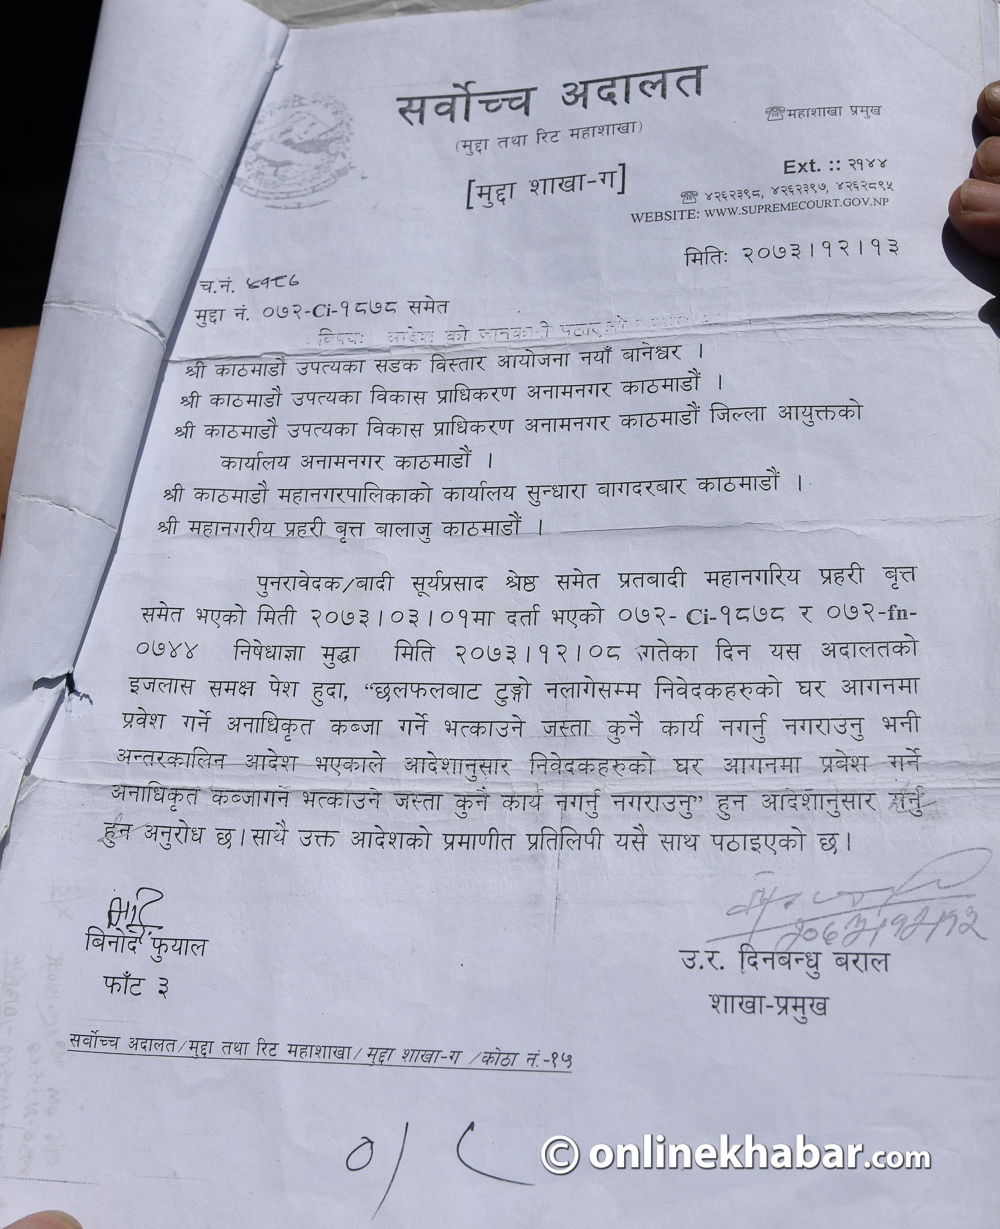 सर्वोच्च अदालत
(मुद्दा तथा रिट महाशाखा)
[मुद्दा शाखा-ग]
☎महाशाखा प्रमुख
Ext. :: २१४४
☎ ४२६२३९८, ४२६२३९७, ४२६२८९५
WEBSITE: WWW.SUPREMECOURT.GOV.NP
मितिः २०७३।१२।१३
च.नं.
मुद्दा नं. ०७२-Ci-१८७८ समेत
विषयः आदेश को जानकारी
श्री काठमाडौ उपत्यका सडक विस्तार आयोजना नयाँ बानेश्वर ।
श्री काठमाडौ उपत्यका विकास प्राधिकरण अनामनगर काठमाडौं ।
श्री काठमाडौ उपत्यका विकास प्राधिकरण अनामनगर काठमाडौं जिल्ला आयुक्तको
कार्यालय अनामनगर काठमाडौं ।
श्री काठमाडौ महानगरपालिकाको कार्यालय सुन्धारा बागदरबार काठमाडौं ।
श्री महानगरीय प्रहरी बृत्त बालाजु काठमाडौं ।
पुनरावेदक/बादी सूर्यप्रसाद श्रेष्ठ समेत प्रतबादी महानगरिय प्रहरी बृत्त
समेत भएको मिती २०७३।०३।०१मा दर्ता भएको ०७२- Ci-१८७८ र ०७२-fn-
०७४४ निषेधाज्ञा मुद्धा मिति २०७३।१२।०८ गतेका दिन यस अदालतको
इजलास समक्ष पेश हुदा, “छलफलबाट टुङ्गो नलागेसम्म निवेदकहरुको घर आगनमा
प्रवेश गर्ने अनाधिकृत कब्जा गर्ने भत्काउने जस्ता कुनै कार्य नगर्नु नगराउनु भनी
अन्तरकालिन आदेश भएकाले आदेशानुसार निवेदकहरुको घर आगनमा प्रबेश गर्ने
अनाधिकृत कब्जागर्ने भत्काउने जस्ता कुनै कार्य नगर्नु नगराउनु” हुन आदेशानुसार गर्नु
हुन अनुरोध छ।साथै उक्त आदेशको प्रमाणीत प्रतिलिपी यसै साथ पठाइएको छ।
बिनोद फुयाल
फाँट ३
२०७३।१२।१२
उ.र. दिनबन्धु बराल
शाखा-प्रमुख
सर्वोच्च अदालत/मुद्दा तथा रिट महाशाखा/मुद्दा शाखा-ग /कोठा नं.-१५
© onlinekhabar.com